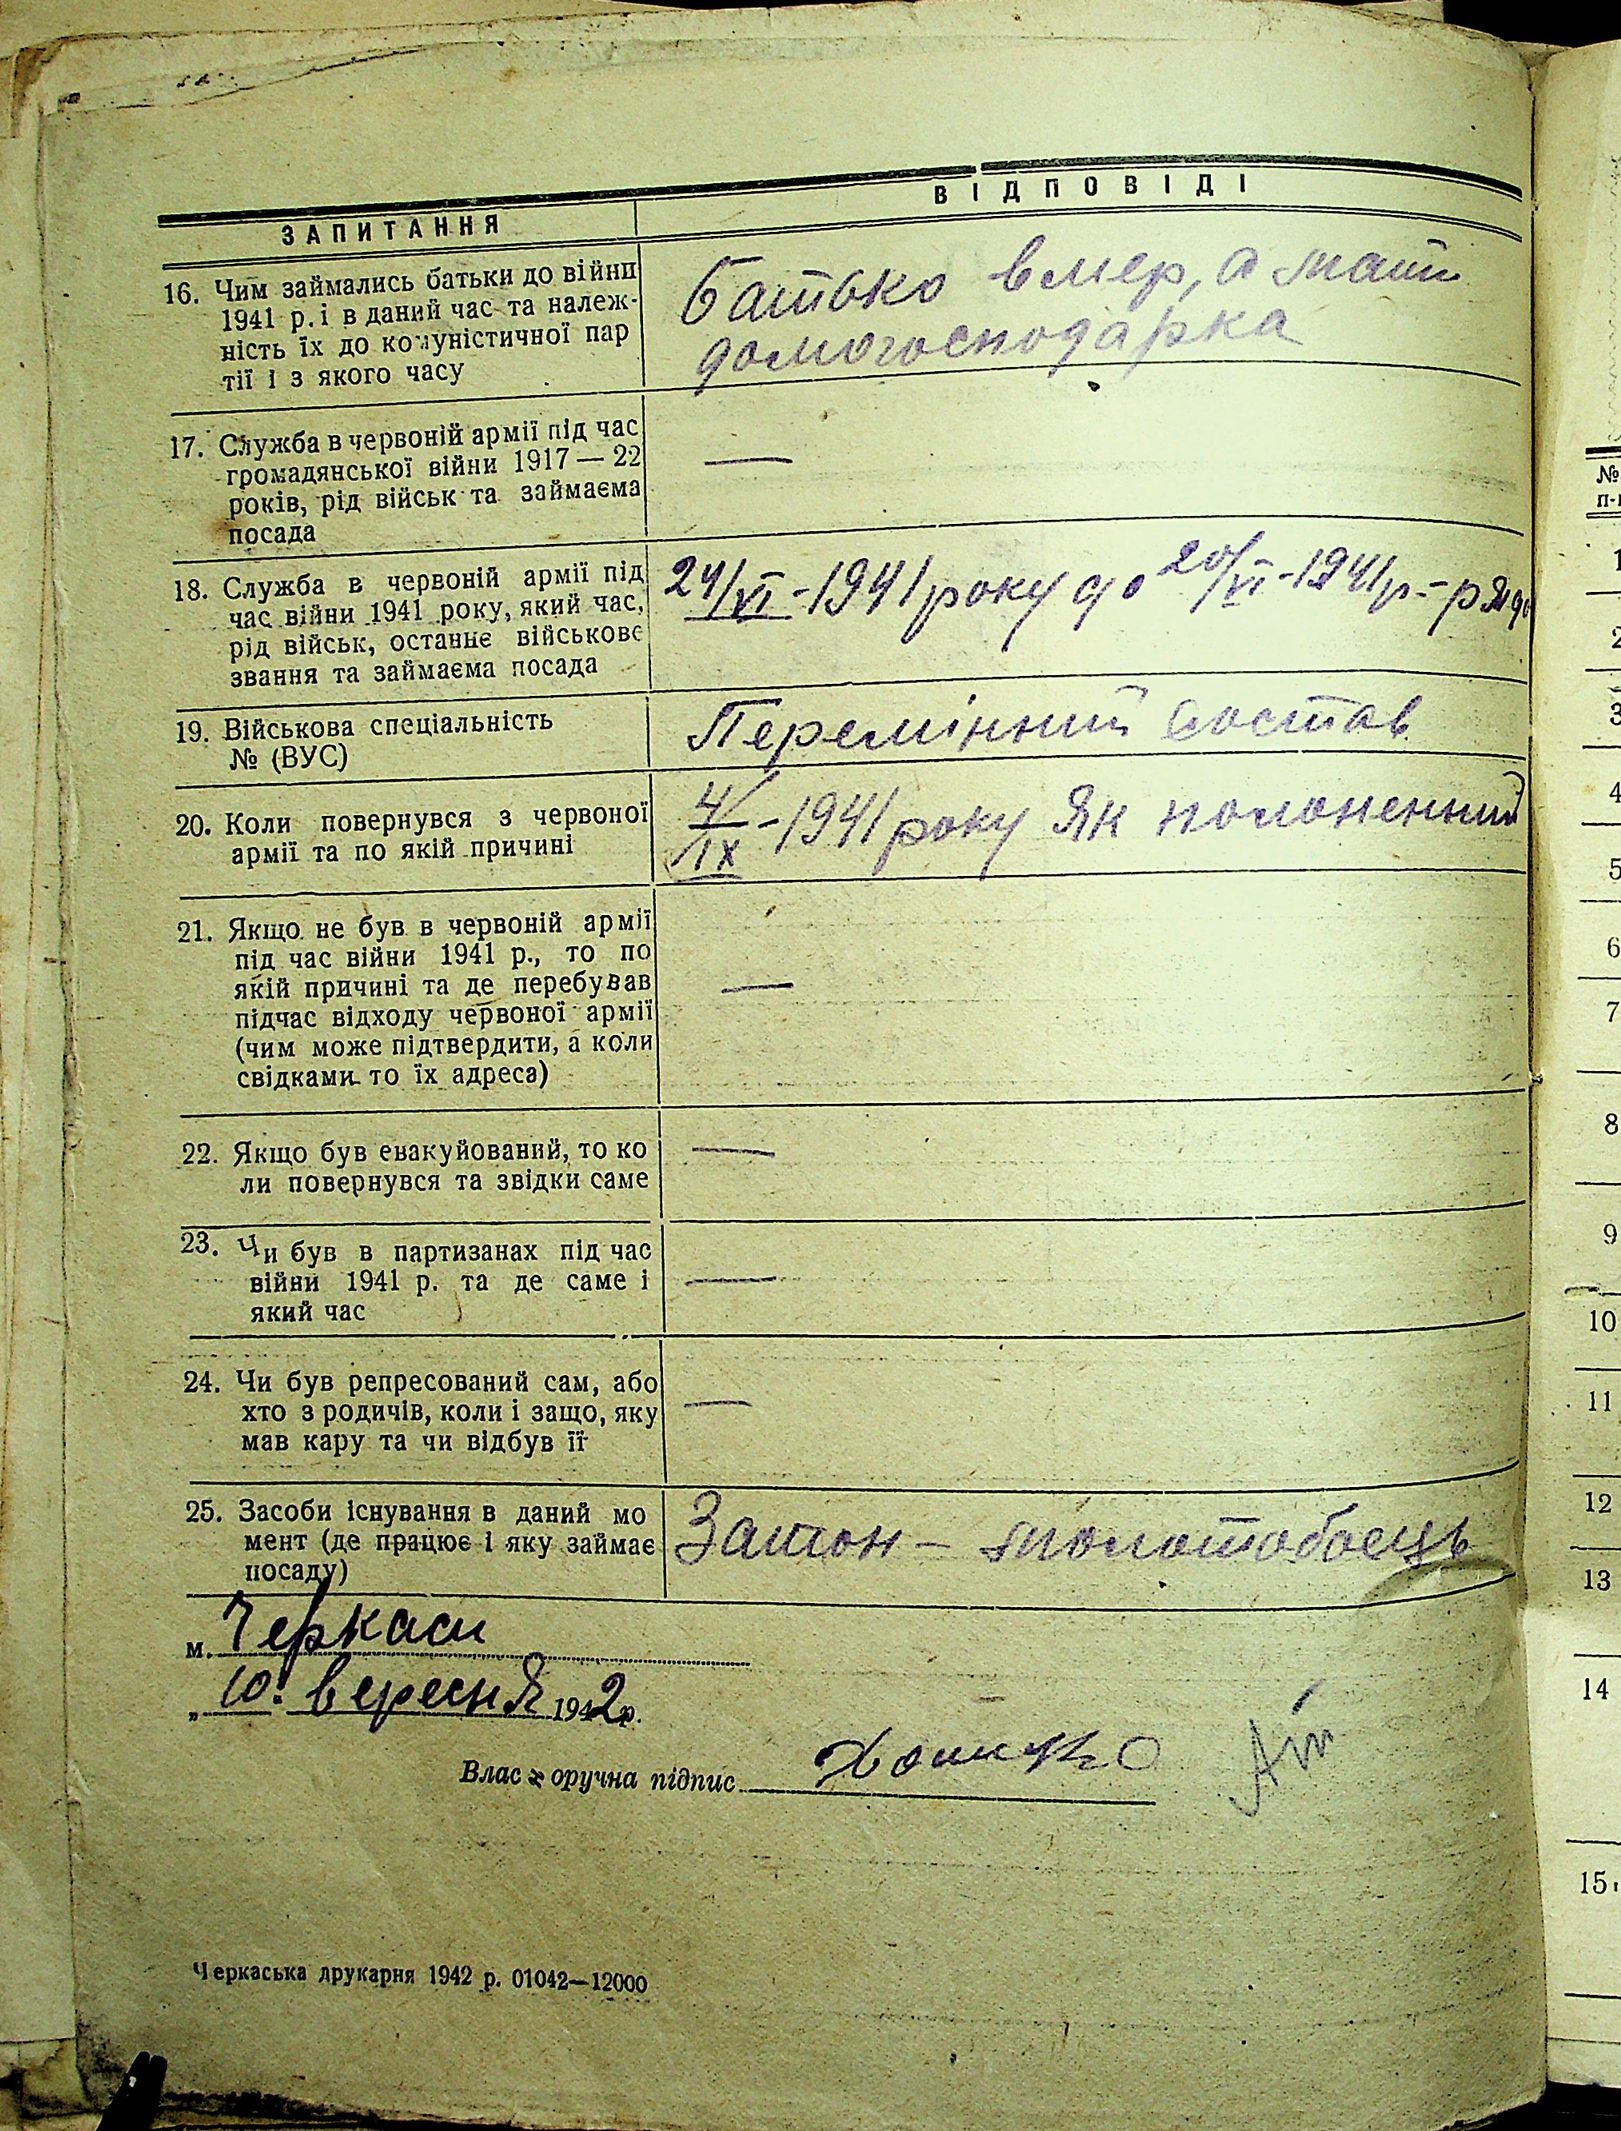 ЗАПИТАННЯ
ВІДПОВІДІ
16. Чим займались батьки до війни
1941 р. і в даний час та належ-
ність їх до комуністичної пар
тії і з якого часу
Батько вмер, а мати
домогосподарка
17. Служба в червоній армії під час
громадянської війни 1917 — 22
років, рід військ та займаєма
посада
—
18. Служба в червоній армії під
час війни 1941 року, який час,
рід військ, останнє військове
звання та займаєма посада
24/VI - 1941 року до 20/VI - 1941 р. - рядо
19. Військова спеціальність
№ (ВУС)
Перемінний состав
20. Коли повернувся з червоної
армії та по якій причині
4/IX - 1941 року Як полоненний
21. Якщо не був в червоній армії
під час війни 1941 р., то по
якій причині та де перебував
підчас відходу червоної армії
(чим може підтвердити, а коли
свідками то їх адреса)
—
22. Якщо був евакуйований, то ко
ли повернувся та звідки саме
—
23. Чи був в партизанах під час
війни 1941 р. та де саме і
який час
—
24. Чи був репресований сам, або
хто з родичів, коли і защо, яку
мав кару та чи відбув її
—
25. Засоби існування в даний мо
мент (де працює і яку займає
посаду)
Затон — молотобоець
м. Черкаси
„ 10. вересня 1942 р.
Власноручна підпис
Черкаська друкарня 1942 р. 01042—12000
№
п-
1
2
3
4
5
6
7
8
9
10
11
12
13
14
15.